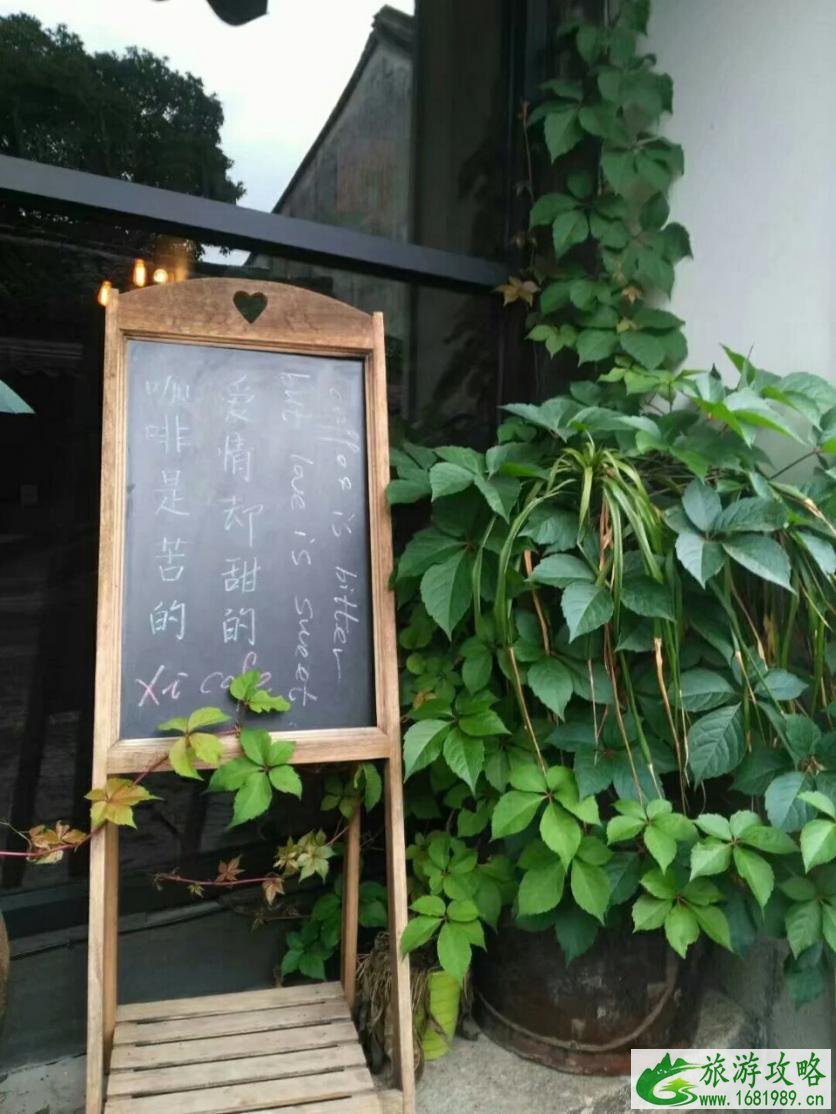 咖啡是苦的
爱情却甜的
coffee is bitter
but love is sweet.
Xi cafe
旅游攻略
www.1681989.cn